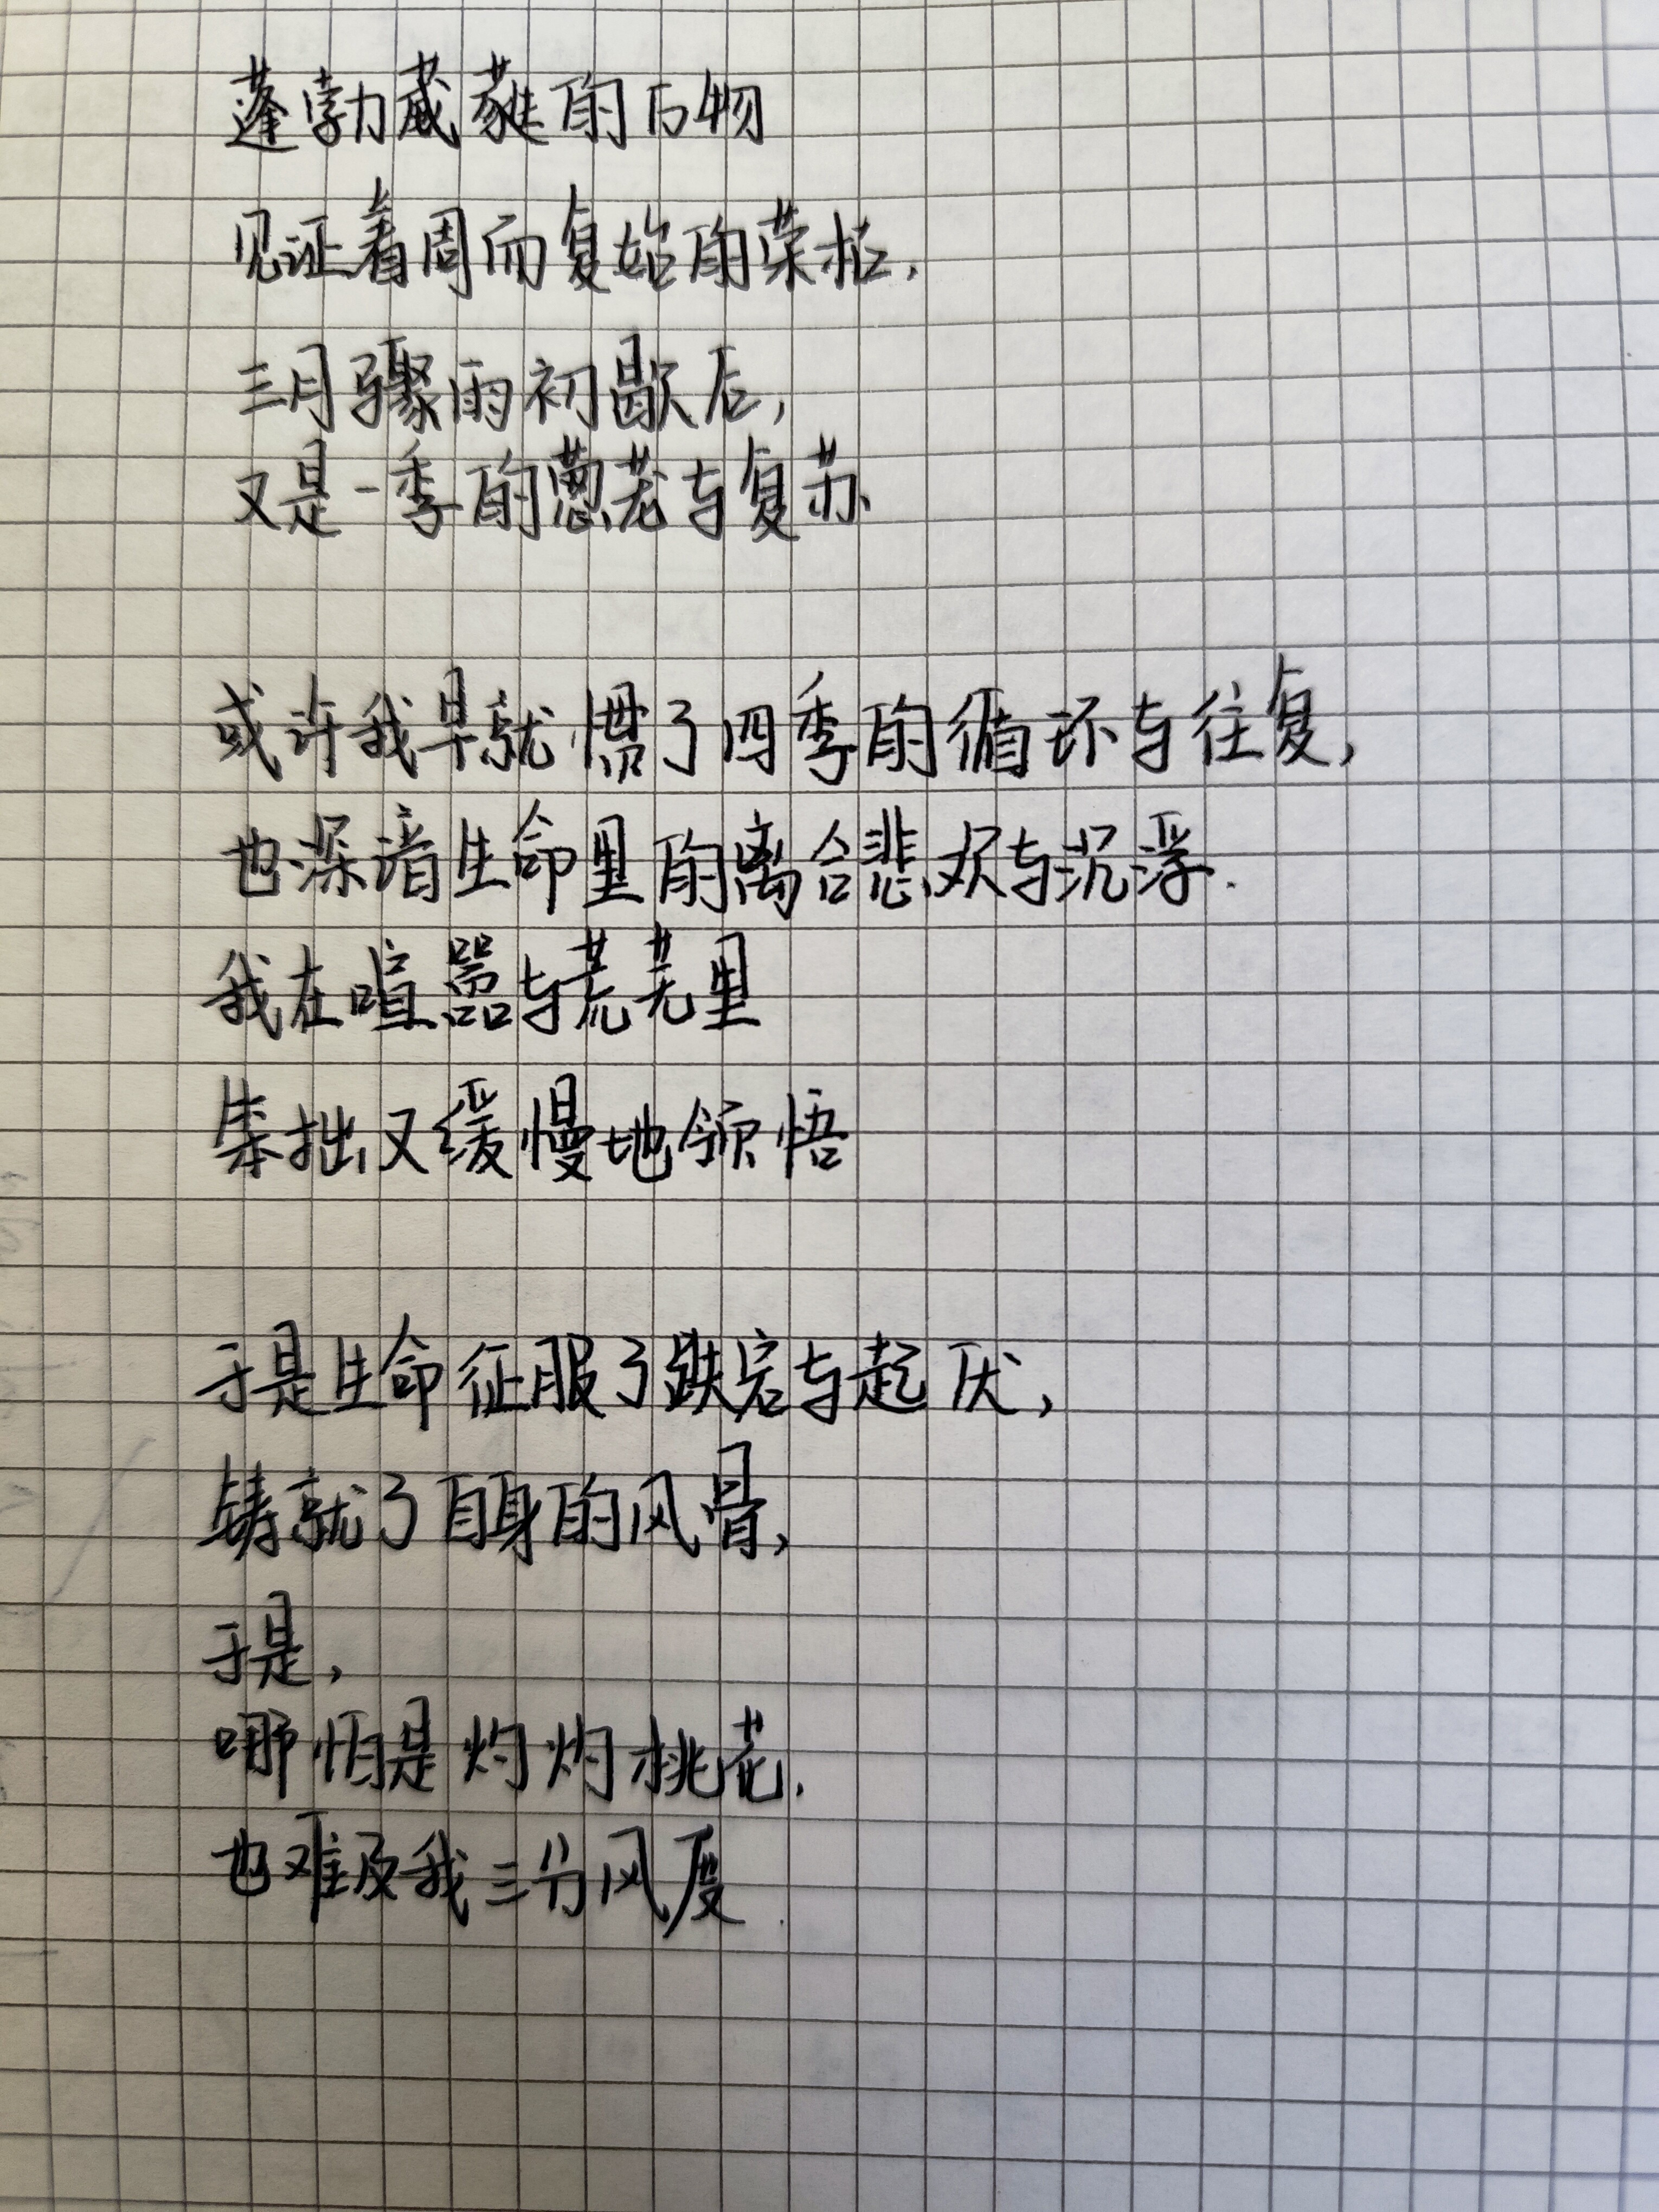 蓬勃葳蕤的万物
见证着周而复始的荣枯,
三月骤雨初歇后,
又是一季的葱茏与复苏
或许我早就惯了四季的循环与往复,
也深谙生命里的离合悲欢与沉浮.
我在喧嚣与荒芜里
笨拙又缓慢地领悟
于是生命征服了跌宕与起伏,
铸就了自身的风骨,
于是,
哪怕是灼灼桃花.
也难及我三分风度.